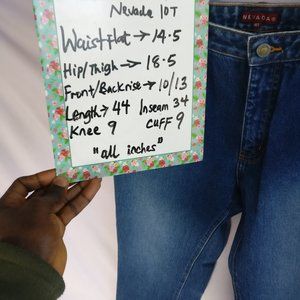 Nevada 10T
Waist flat → 14.5
Hip/Thigh → 18.5
Front/Backrise → 10/13
Length → 44 Inseam 34
Knee 9 Cuff 9
"all inches"
NEVADA